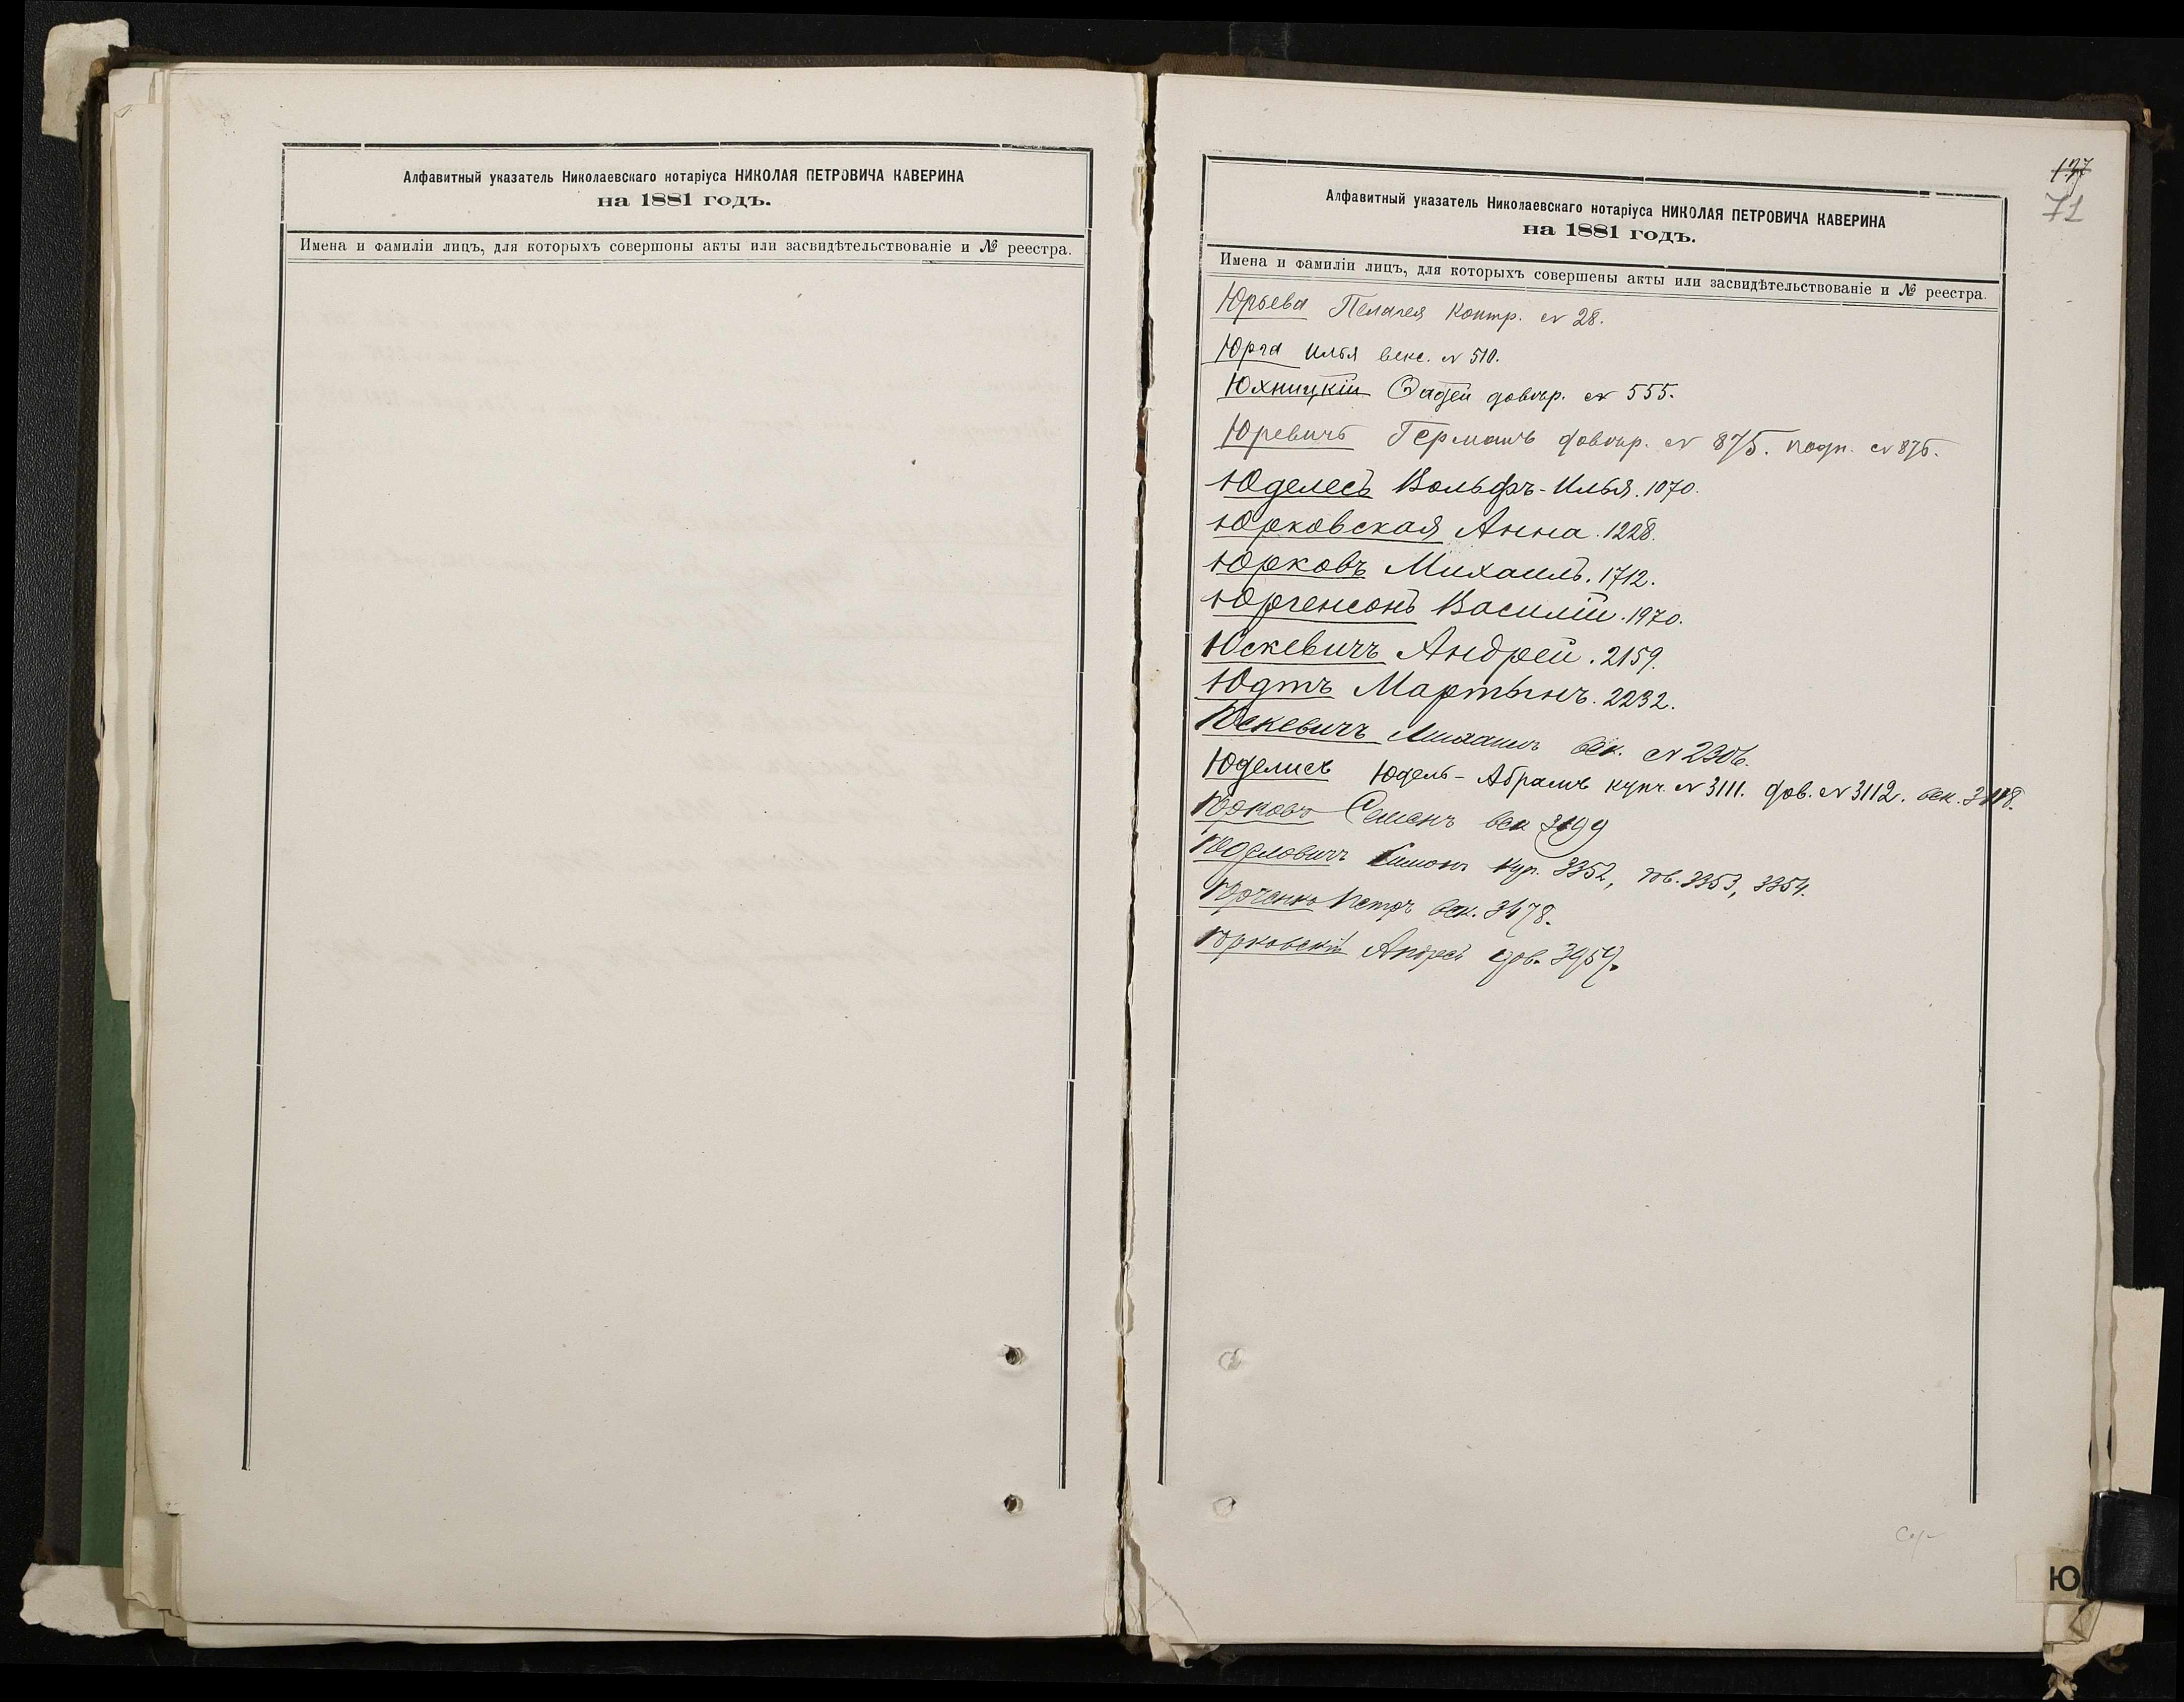 Алфавитный указатель Николаевскаго нотаріуса НИКОЛАЯ ПЕТРОВИЧА КАВЕРИНА
на 1881 годъ.
Имена и фамиліи лицъ, для которыхъ совершоны акты или засвидѣтельствованіе и № реестра.
137
71
Алфавитный указатель Николаевскаго нотаріуса НИКОЛАЯ ПЕТРОВИЧА КАВЕРИНА
на 1881 годъ.
Имена и фамиліи лицъ, для которыхъ совершены акты или засвидѣтельствованіе и № реестра.
Юрьева Пелагея контр. № 28.
Юрга Илья векс. № 510.
Юхницкій Фадей довѣр. № 555.
Юревичъ Германъ довѣр. № 875. подп. № 876.
Юделесъ Вольфъ-Илья. 1070.
Юрковская Анна. 1228.
Юрковъ Михаилъ. 1712.
Юргенсонъ Василій. 1970.
Юскевичъ Андрей. 2159.
Юдтъ Мартынъ. 2232.
Юскевичъ Михаилъ век. № 2306.
Юделисъ Юдель-Абрамъ купч. № 3111. дов. № 3112. век. 3118.
Юрковъ Семенъ век 3199
Юделовичъ Симонъ куп. 3352, дов. 3353, 3354.
Юрченко Петръ век. 3478.
Юрковскій Андрей дов. 3959.
Ю